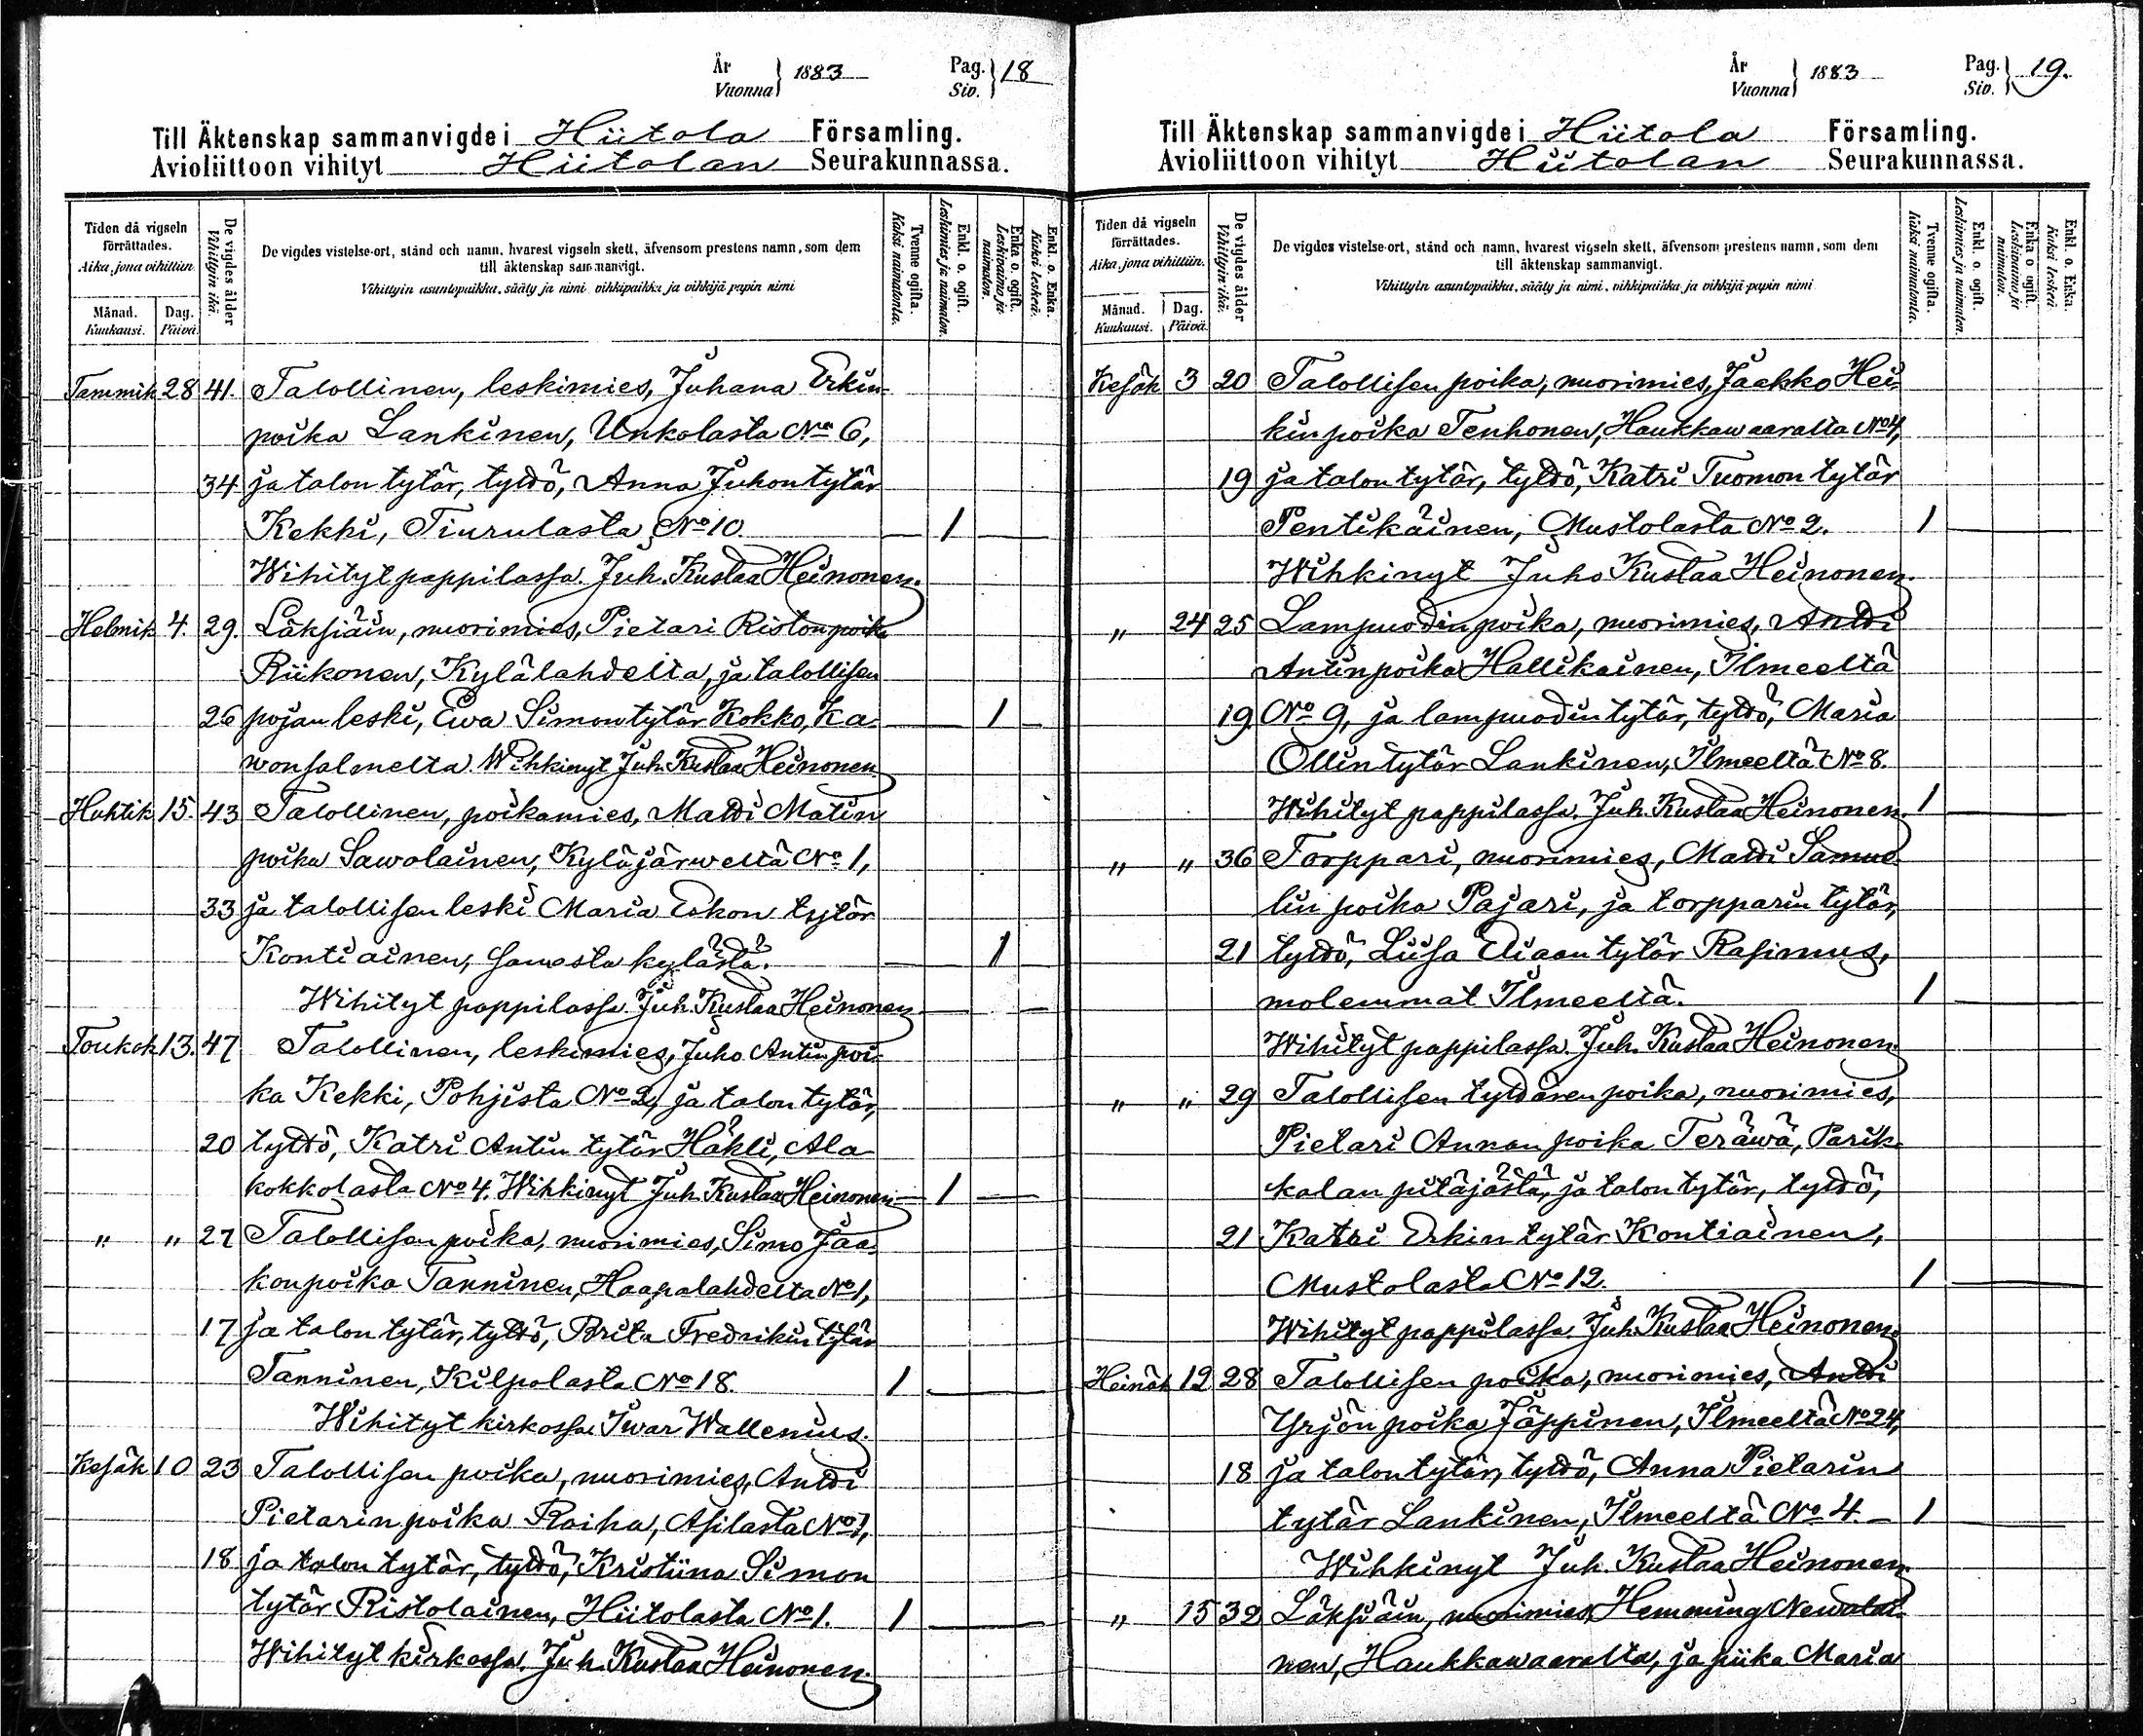 År
Vuonna } 1883 Pag.
Siv. } 18
Till Äktenskap sammanvigde i Hiitola Församling.
Avioliittoon vihityt Hiitolan Seurakunnassa.
Tiden då vigseln förrättades.
Aika, jona vihittiin.
Månad. Kuukausi.
Dag. Päivä.
De vigdes ålder
Vihittyin ikä.
De vigdes vistelse-ort, stånd och namn, hvarest vigseln skett, äfvensom prestens namn, som dem
till äktenskap sammanvigt.
Vihittyin asuntopaikka, sääty ja nimi vihkipaikka ja vihkijä papin nimi
Tvenne ogifta.
Kaksi naimatonta.
Enkl. o. ogift.
Leskimies ja naimaton.
Enka o. ogift.
Leskivaimo ja naimaton.
Enkl. o. Enka.
Kaksi leskeä.
Tammik 28 41. Talollinen, leskimies, Juhana Erkin
poika Lankinen, Unkolasta No 6,
34 ja talon tytär, tyttö, Anna Juhon tytär
Kekki, Tiurulasta No 10. — 1 —
Wihityt pappilassa. Juh. Kustaa Heinonen.
Helmik 4. 29. Läksiäin, nuorimies, Pietari Riston poika
Riikonen, Kylälahdelta, ja talollisen
26 pojan leski, Ewa Simon tytär Kokko, Ka- — 1 —
wonsalmelta. Wihkinyt Juh. Kustaa Heinonen
Huhtik 15. 43 Talollinen, poikamies, Matti Matin
poika Sawolainen, Kyläjärweltä No 1,
33 ja talollisen leski Maria Eskon tytär
Kontiainen, samasta kylästä. — 1
Wihityt pappilassa. Juh. Kustaa Heinonen
Toukok 13. 47 Talollinen, leskimies, Juho Antin poi-
ka Kekki, Pohjista No 2, ja talon tytär,
20 tyttö, Katri Antin tytär Häkli, Ala
kokkolasta No 4. Wihkinyt Juh. Kustaa Heinonen — 1 —
" " 27 Talollisen poika, nuorimies, Simo Jaa-
kon poika Tanninen, Haapalahdelta No 1,
17 ja talon tytär, tyttö, Brita Fredrikin tytär
Tanninen, Kilpolasta No 18. 1 —
Wihityt kirkossa Iwar Wallenius.
Kesäk 10 23 Talollisen poika, nuorimies, Antti
Pietarin poika Raiha, Asilasta No 1,
18 ja talon tytär, tyttö, Kristiina Simon
tytär Ristolainen, Hiitolasta No 1. 1 —
Wihityt kirkossa. Juh. Kustaa Heinonen.
År
Vuonna } 1883 Pag.
Siv. } 19.
Till Äktenskap sammanvigde i Hiitola Församling.
Avioliittoon vihityt Hiitolan Seurakunnassa.
Tiden då vigseln förrättades.
Aika, jona vihittiin.
Månad. Kuukausi.
Dag. Päivä.
De vigdes ålder
Vihittyin ikä.
De vigdes vistelse-ort, stånd och namn, hvarest vigseln skett, äfvensom prestens namn, som dem
till äktenskap sammanvigt.
Vihittyin asuntopaikka, sääty ja nimi, vihkipaikka ja vihkijä-papin nimi
Tvenne ogifta.
Kaksi naimatonta.
Enkl. o. ogift.
Leskimies ja naimaton.
Enka o ogift.
Leskivaimo ja naimaton.
Enkl. o. Enka.
Kaksi leskeä.
Kesäk 3 20 Talollisen poika, nuorimies, Jaakko Hei-
kin poika Tenhonen, Haukkawaaralta No 4,
19 ja talon tytär, tyttö, Katri Tuomon tytär
Pentikäinen, Mustolasta No 2. 1 —
Wihkinyt Juho Kustaa Heinonen.
" 24 25 Lampuodin poika, nuorimies, Antti
Antin poika Hallikainen, Ilmeeltä
19 No 9, ja lampuodin tytär, tyttö, Maria
Ollin tytär Lankinen, Ilmeeltä No 8.
Wihityt pappilassa. Juh. Kustaa Heinonen. 1 —
" " 36 Torppari, nuorimies, Matti Samue-
lin poika Pajari, ja torpparin tytär,
21 tyttö, Liisa Eliaan tytär Rasimus,
molemmat Ilmeeltä. 1 —
Wihityt pappilassa. Juh. Kustaa Heinonen.
" " 29 Talollisen tyttären poika, nuorimies,
Pietari Annan poika Teräwä, Parik-
kalan pitäjästä, ja talon tytär, tyttö,
21 Katri Erkin tytär Kontiainen,
Mustolasta No 12. 1 —
Wihityt pappilassa. Juh. Kustaa Heinonen.
Heinäk 12 28 Talollisen poika, nuorimies, Antti
Yrjön poika Jäppinen, Ilmeeltä No 24,
18 ja talon tytär, tyttö, Anna Pietarin
tytär Lankinen, Ilmeeltä No 4. — 1 —
Wihkinyt Juh. Kustaa Heinonen.
" 15 32 Läksiäin, nuorimies, Hemming Newalai-
nen, Haukkawaaralta, ja piika Maria